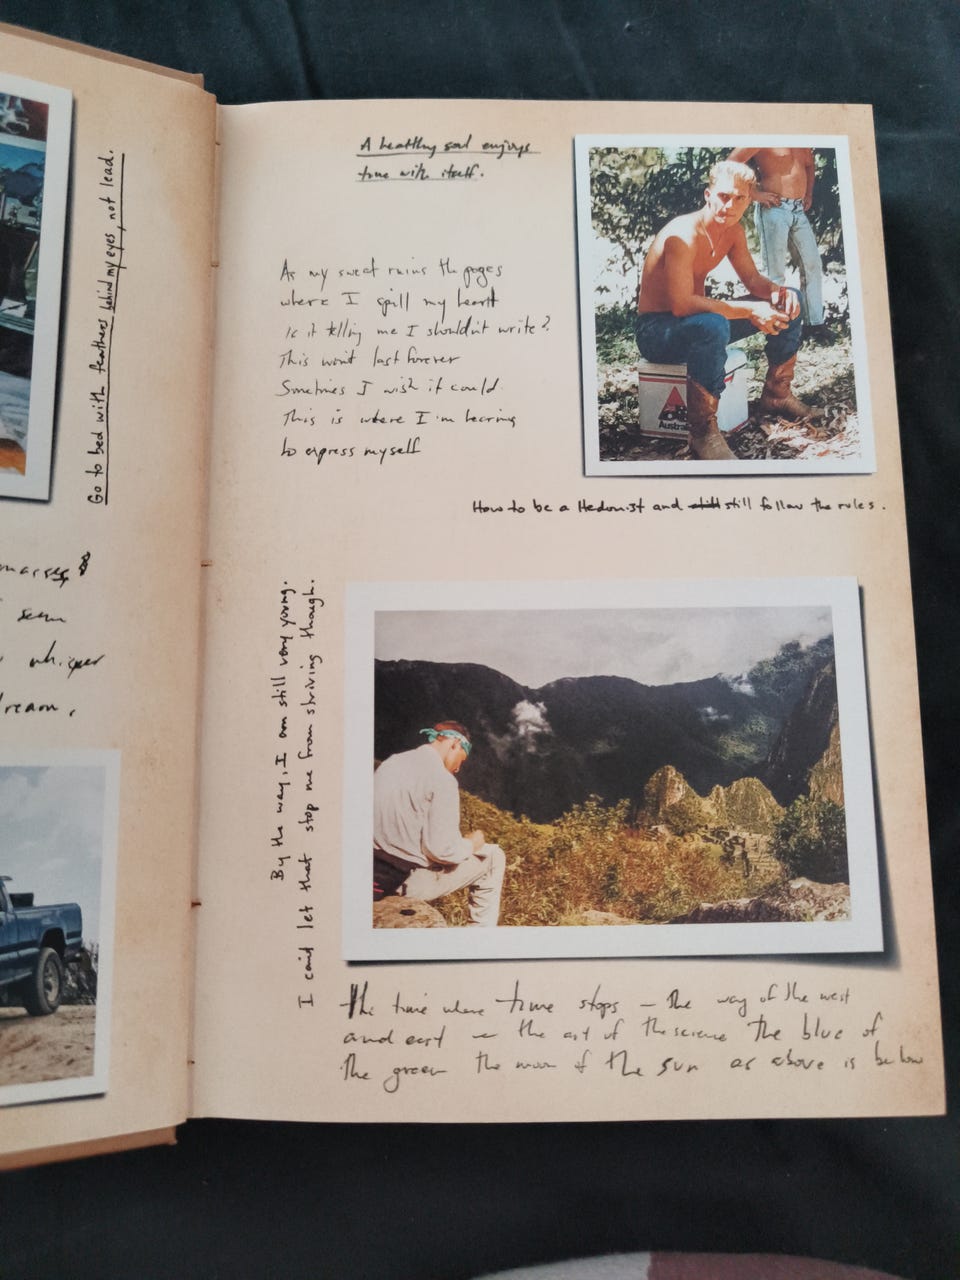 Go to bed with feathers behind my eyes, not lead.
seem
whisper
dream,
A healthy soul enjoys
time with itself.
As my sweat ruins the pages
where I spill my heart
Is it telling me I shouldn't write?
This won't last forever
Sometimes I wish it could.
This is where I'm learning
to express myself
Australia
How to be a Hedonist and still still follow the rules.
By the way, I am still very young.
I can't let that stop me from striving though.
The time where time stops – The way of the west
and east – the art of the science The blue of
The green The moon of the sun as above is below